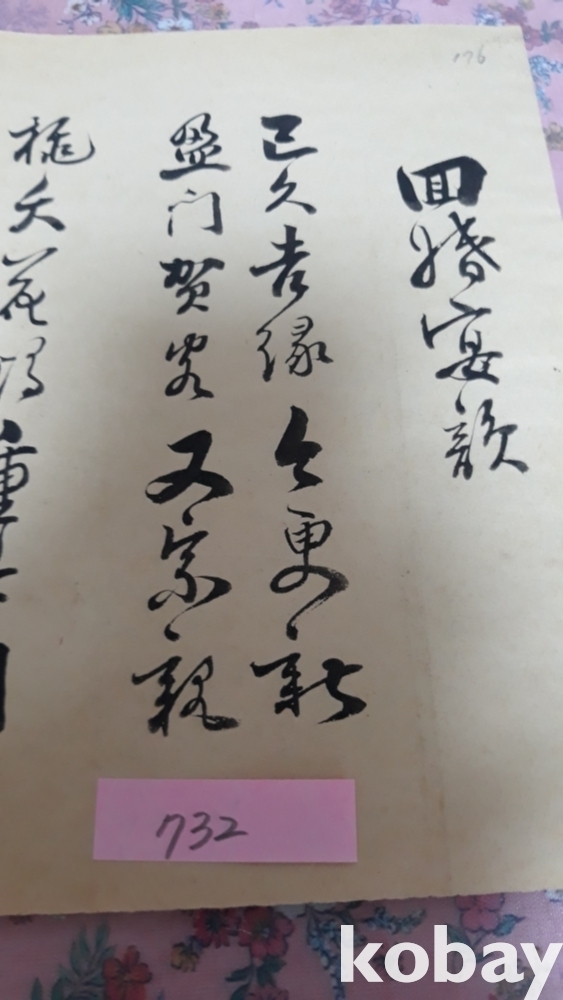 176
回婚宴韻
已久吉緣今更新
盈门賀客又宗親
桃夭花
重
732
kobay